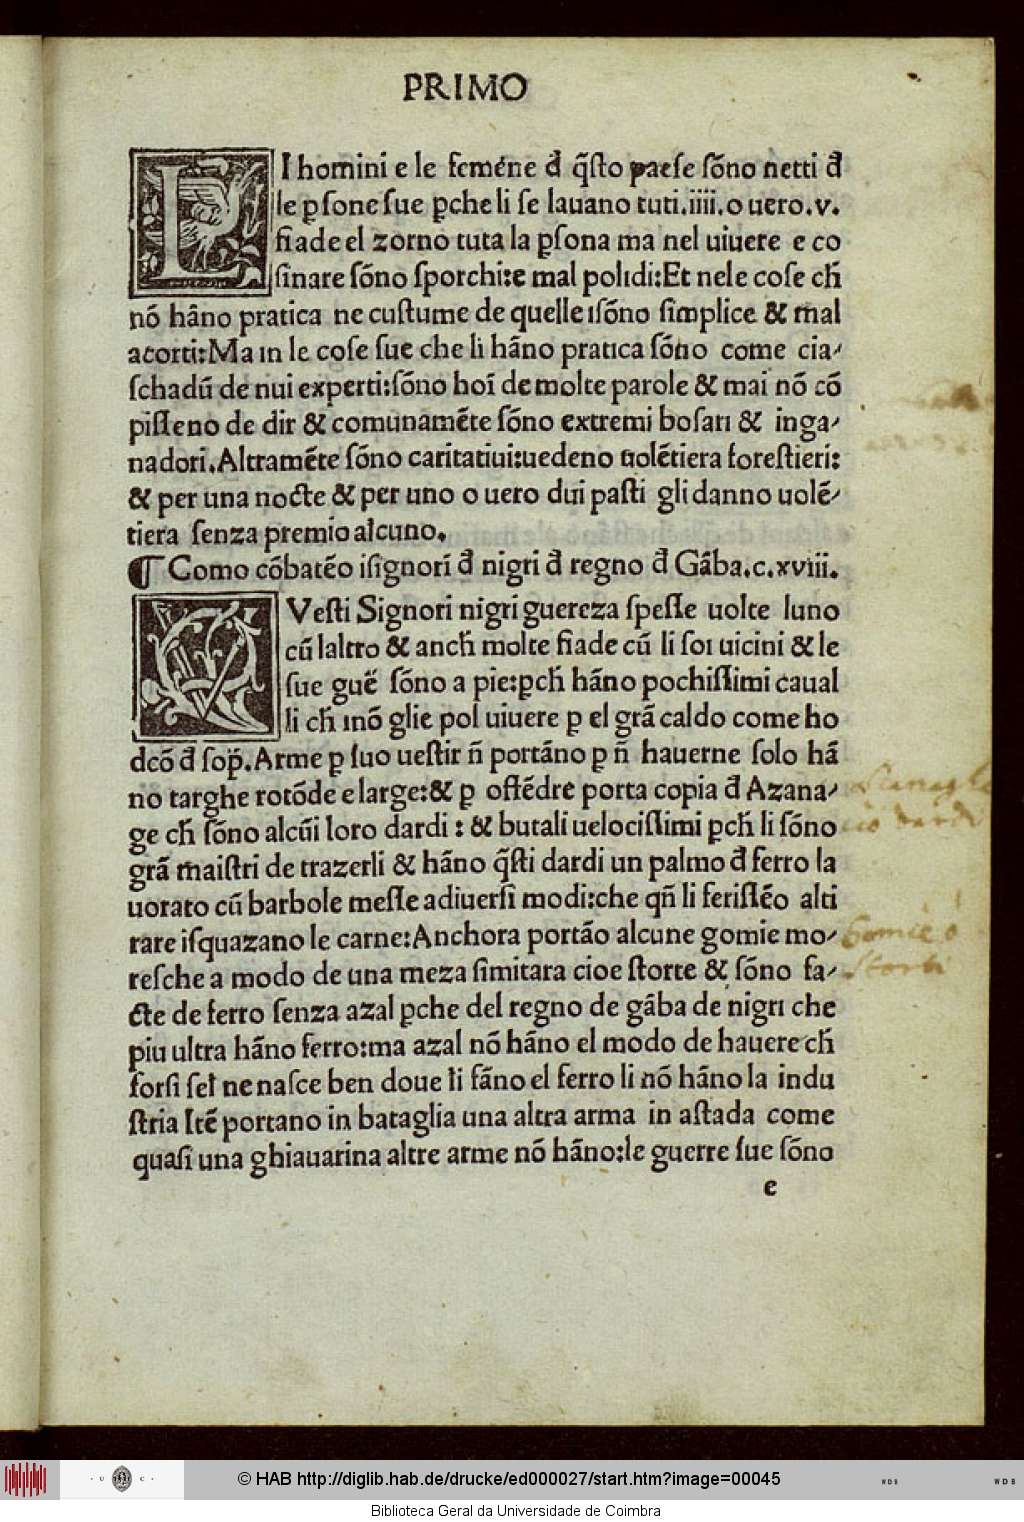 PRIMO
LI homini e le femene đ q̃sto paese sõno netti đ
le ꝑsone sue ꝑche li se lavano tuti.iiii.o uero.v.
fiade el zorno tuta la ꝑsona ma nel uiuere e co
sinare sõno sporchi:e mal polidi:Et nele cose ch̃
nõ hãno pratica ne custume de quelle isõno simplice & mal
acorti:Ma in le cose sue che li hãno pratica sõno come cia-
schadũ de nui experti:sõno hoĩ de molte parole & mai nõ cõ
pisseno de dir & comunamẽte sõno extremi bosari & inga-
nadori.Altramẽte sõno caritatiui:uedeno uolẽtiera forestieri:
& per una nocte & per uno o uero dui pasti gli danno uolẽ-
tiera senza premio alcuno.
¶ Como cõbatẽo isignori đ nigri đ regno đ Gãba.c.xviii.
QVesti Signori nigri guereza spesse uolte luno
cũ laltro & anch̃ molte fiade cũ li soi uicini & le
sue guẽ sõno a pie:ꝑch̃ hãno pochissimi caual
li ch̃ inõ glie pol uiuere ꝑ el grã caldo come ho
dcõ đ sop̃.Arme ꝑ suo uestir ñ portãno ꝑ ñ hauerne solo hã
no targhe rotõde e large:& ꝑ ostẽdre porta copia đ Azana-
ge ch̃ sõno alcũi loro dardi : & butali uelocissimi ꝑch̃ li sõno
grã maistri de trazerli & hãno q̃sti dardi un palmo đ ferro la
uorato cũ barbole messe adiuersi modi:che qñ li ferissẽo alti
rare isquazano le carne:Anchora portão alcune gomie mo-
resche a modo de una meza simitara cioe storte & sõno fa-
cte de ferro senza azal ꝑche del regno de gãba de nigri che
piu ultra hãno ferro:ma azal nõ hãno el modo de hauere ch̃
forsi sel ne nasce ben doue li fãno el ferro li nõ hãno la indu
stria Itẽ portano in bataglia una altra arma in astada come
quasi una ghiauarina altre arme nõ hãno:le guerre sue sõno
e
dardi
Gomie o
storti
© HAB http://diglib.hab.de/drucke/ed000027/start.htm?image=00045
Biblioteca Geral da Universidade de Coimbra